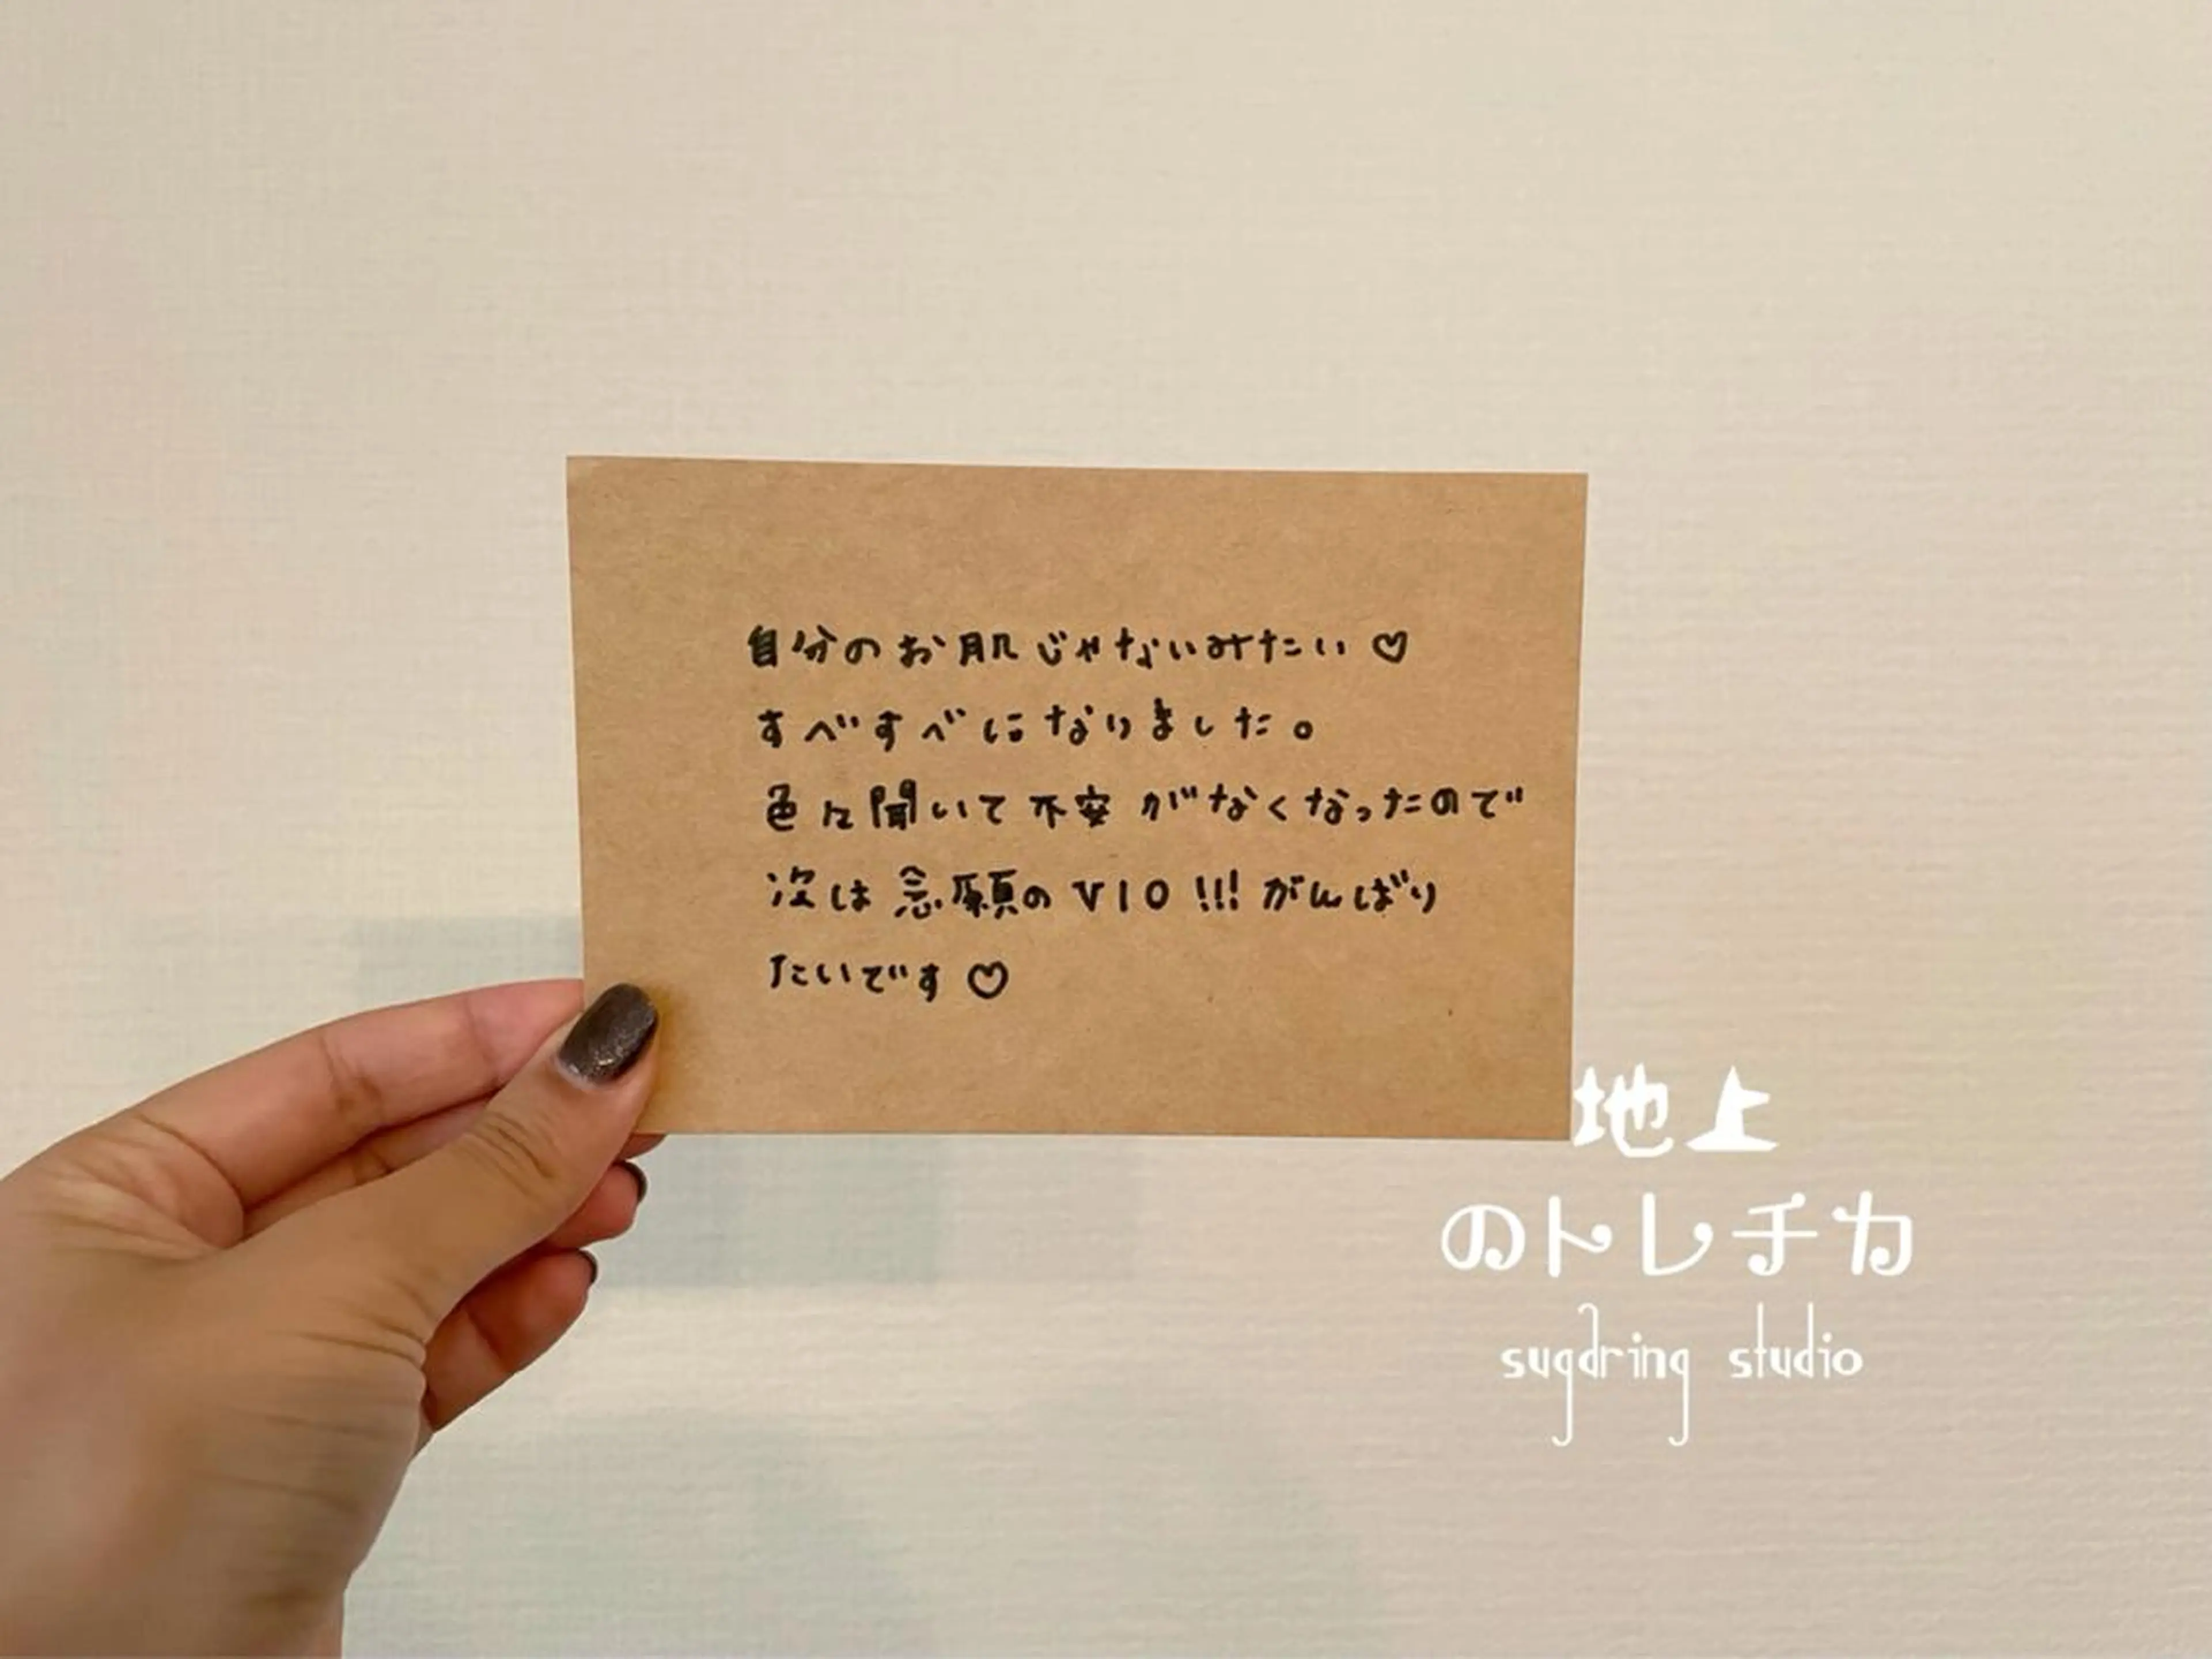 自分のお肌じゃないみたい♡
すべすべになりました。
色々聞いて不安がなくなったので
次は念願のVIO!!!がんばり
たいです♡
地上
のトレチカ
sugaring studio